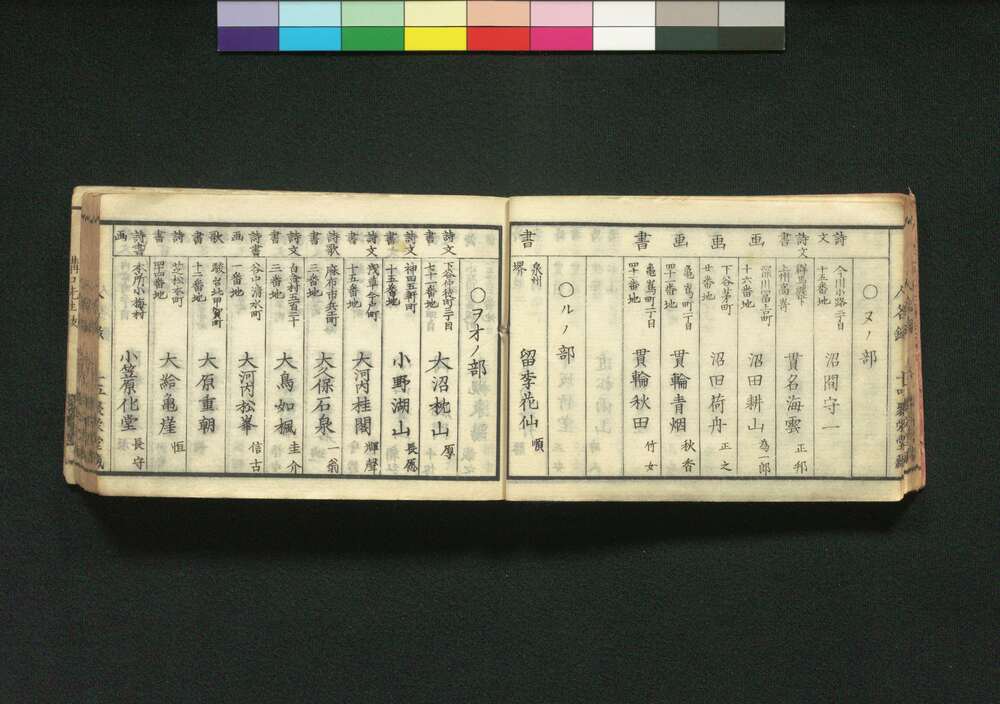 ○ヌノ部
詩文 今川小路二丁目十五番地 沼間守一
詩文書 貫名海雲 正邦
画 深川冨吉町十六番地 沼田耕山 為一郎
画 下谷茅町廿番地 沼田荷舟 正之
画 亀嶌町一丁目四十番地 貫輪青烟 秋香
書 亀嶌町一丁目四十番地 貫輪秋田 竹女
○ルノ部
書 泉州堺 留李花仙 順
○ヲオノ部
詩文書 下谷仲徒町三丁目 大沼枕山 厚
詩文書 神田五軒町十五番地 小野湖山 長愿
詩文書 浅草今戸町十五番地 大河内桂閣 輝聲
詩歌書 麻布市兵エ町三番地 大久保石泉 一翁
詩文書 白金村五百三十三番地 大鳥如楓 圭介
詩書画 谷中清水町一番地 大河内松峯 信古
歌書 駿台北甲賀町十二番地 大原重朝
詩書 芝松本町四十四番地 大給亀崖 恒
詩書画 本所小梅村 小笠原化堂 長守